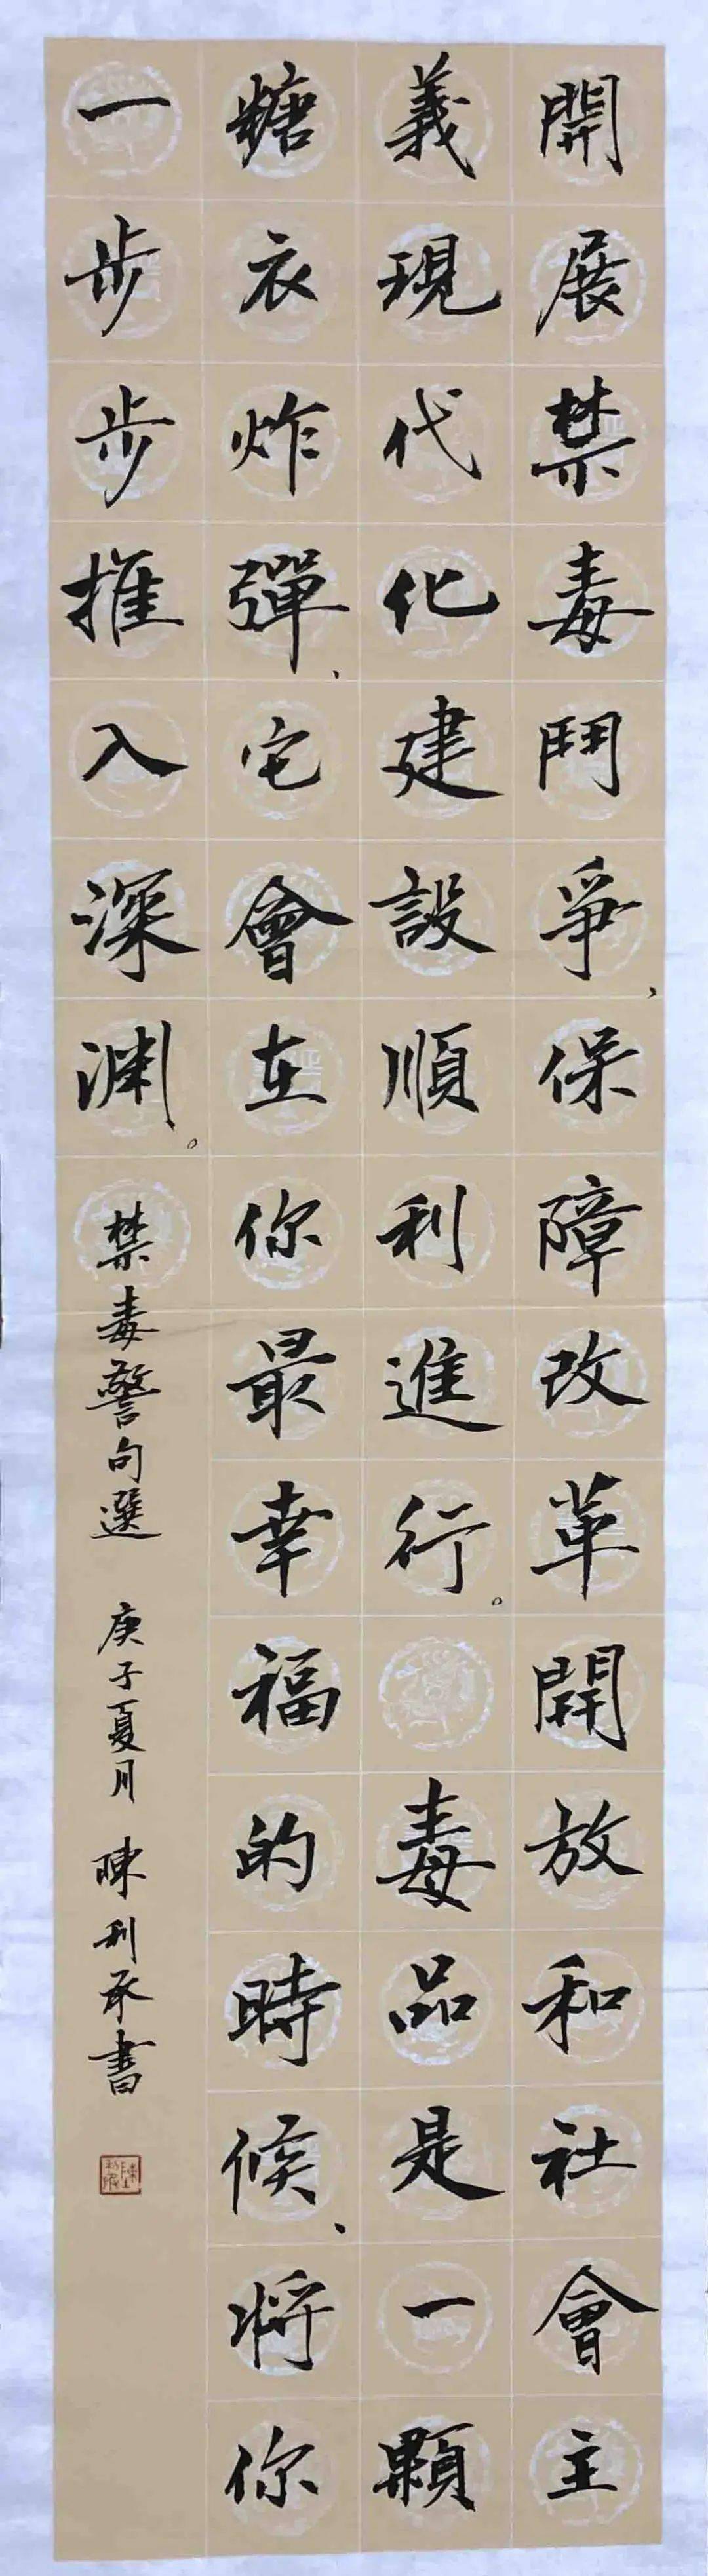 開展禁毒鬥爭、保障改革開放和社會主
義現代化建設順利進行。毒品是一顆
糖衣炸彈、它會在你最幸福的時候、將你
一步步推入深渊。
禁毒警句選 庚子夏月 陳利承書